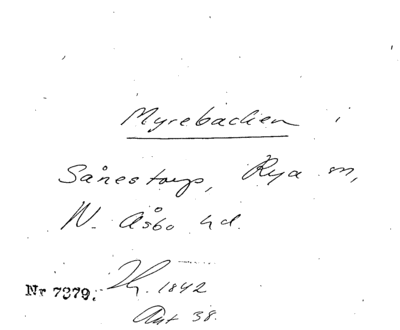 Myrebacken i
Sånestorp, Rya sn,
N. Åsbo hd.
Nr 7379. 1842
Akt 38.